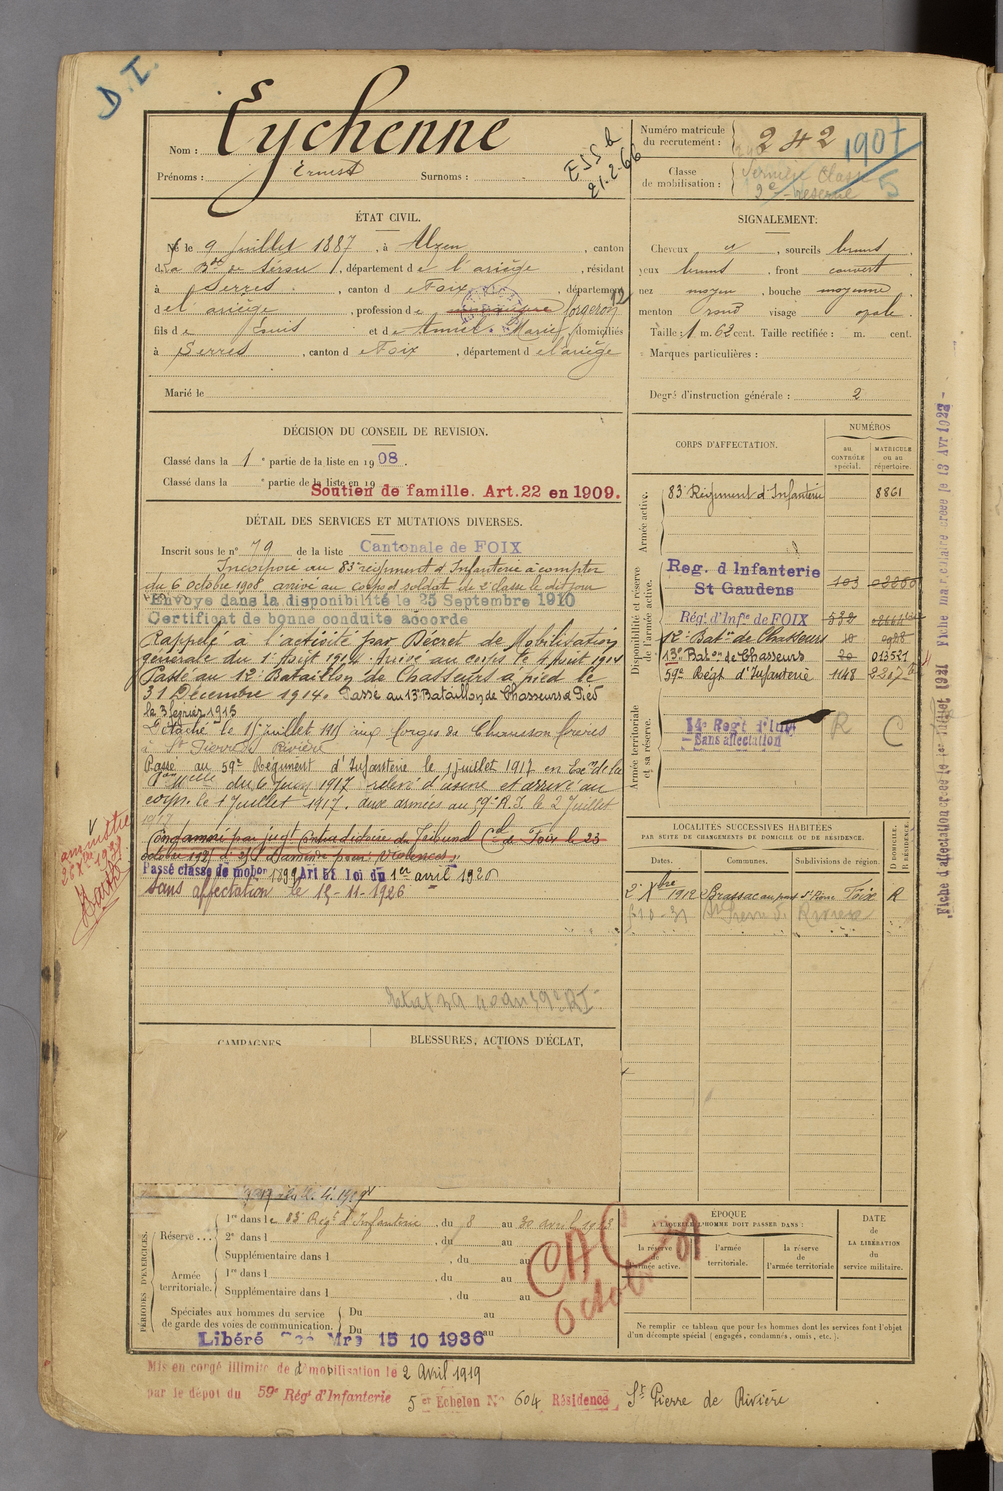 D.I.
Nom : Eychenne
Prénoms : Ernest Surnoms :
ESS b
21.2.66
Numéro matricule
du recrutement : 242
1907
Classe
de mobilisation : Dernière Classe
2e Réserve
5
ÉTAT CIVIL.
Né le 9 Juillet 1887, à Alzen, canton
de la Bde de Sérou, département de l'ariège, résidant
à Serres, canton de Foix, département
de l'ariège, profession de forgeron 12
fils de Louis et de Marie, domiciliés
à Serres, canton de Foix, département de l'ariège
Marié le
SIGNALEMENT:
Cheveux d, sourcils bruns
yeux bruns, front couvert
nez moyen, bouche moyenne
menton rond visage ovale.
Taille : 1 m. 62 cent. Taille rectifiée : m. cent.
Marques particulières :
Degré d'instruction générale : 2
DÉCISION DU CONSEIL DE REVISION.
Classé dans la 1e partie de la liste en 1908.
Classé dans la e partie de la liste en 19
Soutien de famille. Art. 22 en 1909.
DÉTAIL DES SERVICES ET MUTATIONS DIVERSES.
Inscrit sous le n° 79 de la liste Cantonale de FOIX
Incorporé au 83e régiment d'Infanterie à compter
du 6 octobre 1908 arrivé au corps et soldat de 2e classe le dit jour
Envoyé dans la disponibilité le 25 Septembre 1910
Certificat de bonne conduite accordé
Rappelé à l'activité par Décret de Mobilisation
générale du 1er Août 1914. Arrivé au corps le 4 Août 1914
Passé au 12e Bataillon de Chasseurs à pied le
31 Décembre 1914. Passé au 13e Bataillon de Chasseurs à Pied
le 3 février 1916
Détaché le 15 juillet 1915 aux Forges de Chameson Frères
à St Pierre de Rivière
Passé au 59e Régiment d'Infanterie le 1 juillet 1917 en Exon de la
du 6 Juin 1917 relevé d'usine et arrivé au
corps le 1 Juillet 1917. aux armées au 59e R.I. le 2 Juillet
1917
Condamné par jugt contradictoire du Tribunal Cel de Foix le 23
octobre 1925 à 25f d'amende pour violences.
Passé classe de mobon 1899 Art 58 Loi du 1er avril 1920
Sans affectation le 15-11-1926
amnistie
CORPS D'AFFECTATION.
NUMÉROS
au
CONTRÔLE
spécial.
MATRICULE
ou au
répertoire.
Armée active.
83e Régiment d'Infanterie 8861
Disponibilité et réserve
de l'armée active.
Reg. d Infanterie
St Gaudens 103
Régt d'Infie de FOIX 532
12e Baton de Chasseurs 10
13e Baton de Chasseurs 20 013521
59e Régt d'Infanterie 1148
Armée territoriale
et sa réserve.
14e Regt d'Inf
Sans affectation
R C
LOCALITÉS SUCCESSIVES HABITÉES
PAR SUITE DE CHANGEMENTS DE DOMICILE OU DE RÉSIDENCE.
Dates. Communes. Subdivisions de région. D DOMICILE. R RÉSIDENCE.
2 Xbre 1912 Brassac au pont St Pierre Foix R
St Pierre de Rivière
CAMPAGNES.
BLESSURES, ACTIONS D'ÉCLAT,
PÉRIODES D'EXERCICES.
Réserve ... 1re dans le 83e Régt d'Infanterie, du 8 au 30 avril 1913
2e dans l , du au
Supplémentaire dans l , du au
Armée
territoriale. 1re dans l , du au
Supplémentaire dans l , du au
Spéciales aux hommes du service
de garde des voies de communication. Du au
Du au
Libéré 15 10 1936
CAC
Octobre
ÉPOQUE
À LAQUELLE L'HOMME DOIT PASSER DANS :
la réserve
de
l'armée active.
l'armée
territoriale.
la réserve
de
l'armée territoriale
DATE
de
LA LIBÉRATION
du
service militaire.
Ne remplir ce tableau que pour les hommes dont les services font l'objet
d'un décompte spécial (engagés, condamnés, omis, etc.).
Mis en congé illimité de démobilisation le 2 Avril 1919
par le dépôt du 59e Régt d'Infanterie 5er Echelon N° 604 Résidence St Pierre de Rivière
Fiche d'affectation créée le 1er Juillet 1921 Fiche matriculaire créée le 13 Avr 1923